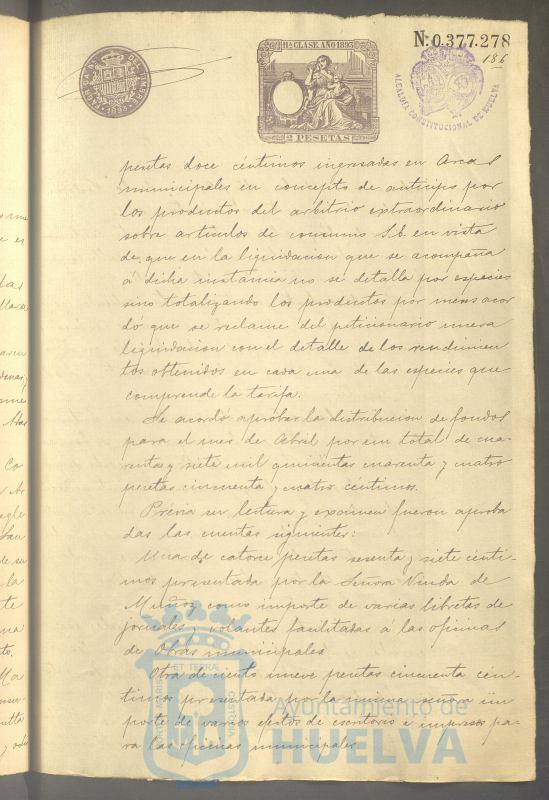 11ª CLASE. AÑO 1893
2 PESETAS
Nº 0.377.278
186
ALCALDIA CONSTITUCIONAL DE HUELVA
pesetas doce céntimos ingresadas en Arcas
municipales en concepto de anticipo por
los productos del arbitrio extraordinario
sobre artículos de consumo S.E. en vista
de que en la liquidacion que se acompaña
á dicha instancia no se detalla por especies
sino totalizando los productos por meses acor
dó que se reclame del peticionario nueva
liquidacion con el detalle de los rendimien
tos obtenidos en cada una de las especies que
comprende la tarifa.
Se acordó aprobar la distribucion de fondos
para el mes de Abril por un total de cua-
renta y siete mil quinientas cuarenta y cuatro
pesetas cincuenta y cuatro céntimos.
Previa su lectura y exámen fueron aproba
das las cuentas siguientes:
Una de catorce pesetas sesenta y siete cénti-
mos presentada por la Señora Viuda de
Muñoz como importe de varias libretas de
jornales y volantes facilitadas á las oficinas
de Obras municipales
Otra de ciento nueve pesetas cincuenta cén-
timos presentada por la misma señora im
porte de varios efectos de escritorio é impresos pa-
ra las oficinas municipales.
Ayuntamiento de
HUELVA